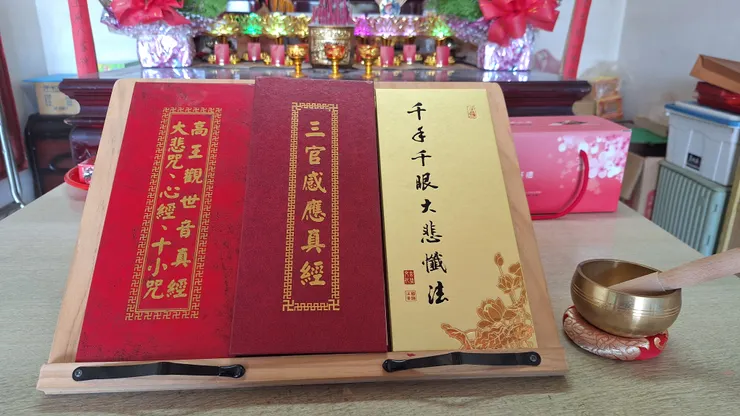 高王觀世音真經
大悲咒、心經、十小咒
三官感應真經
千手千眼大悲懺法